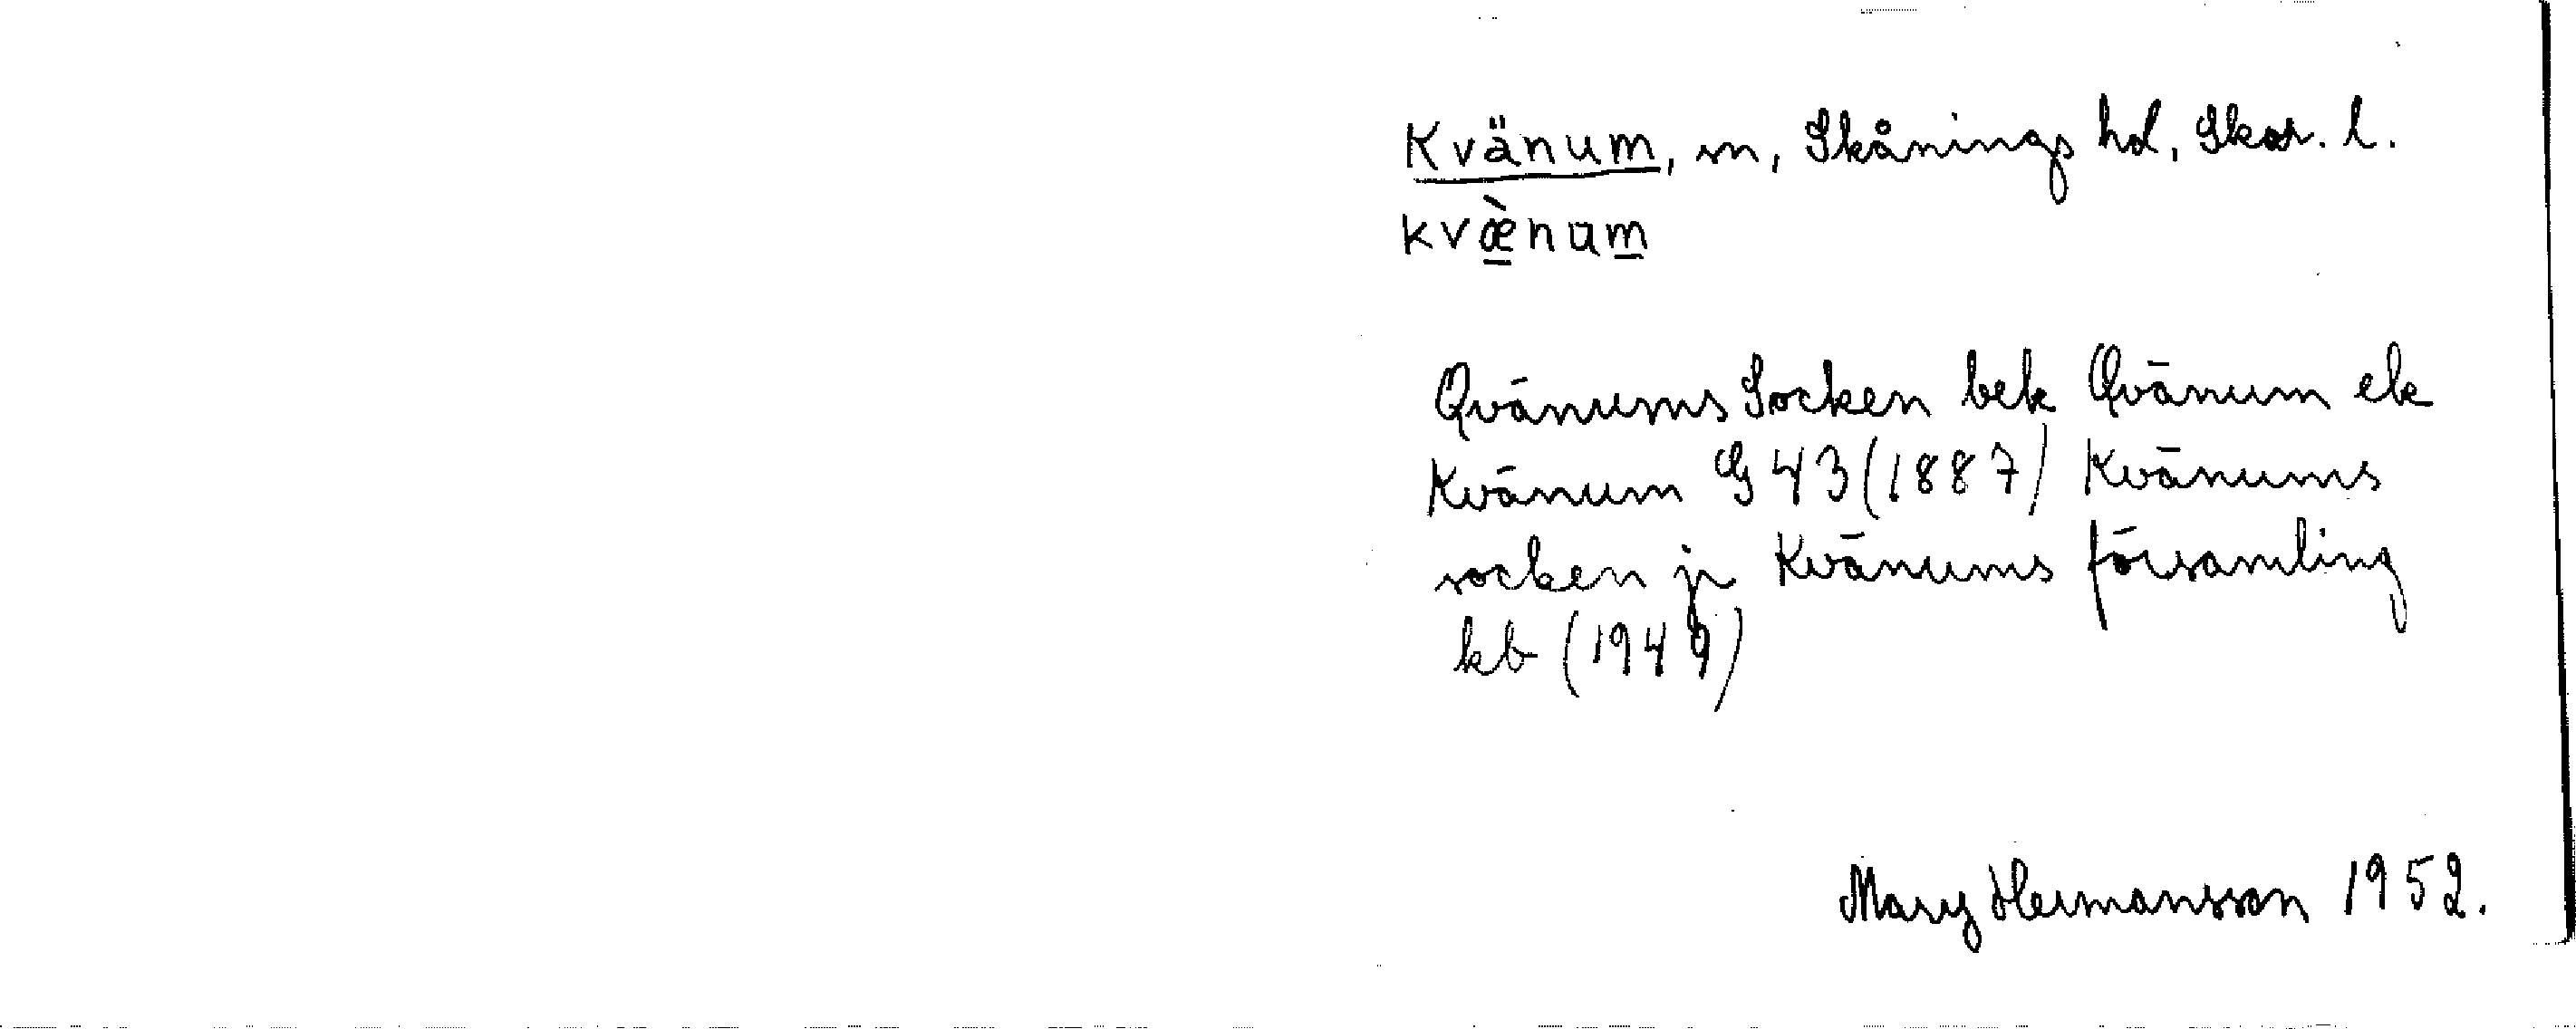 Kvänum, sn, Skånings hd, Skar. l.
kvæ̀num
Qvänums Socken bek Qvänum ek
Kvänum G 43 (1887) Kvänums
socken jr Kvänums församling
kb (1949)
Mary Hermansson 1952.